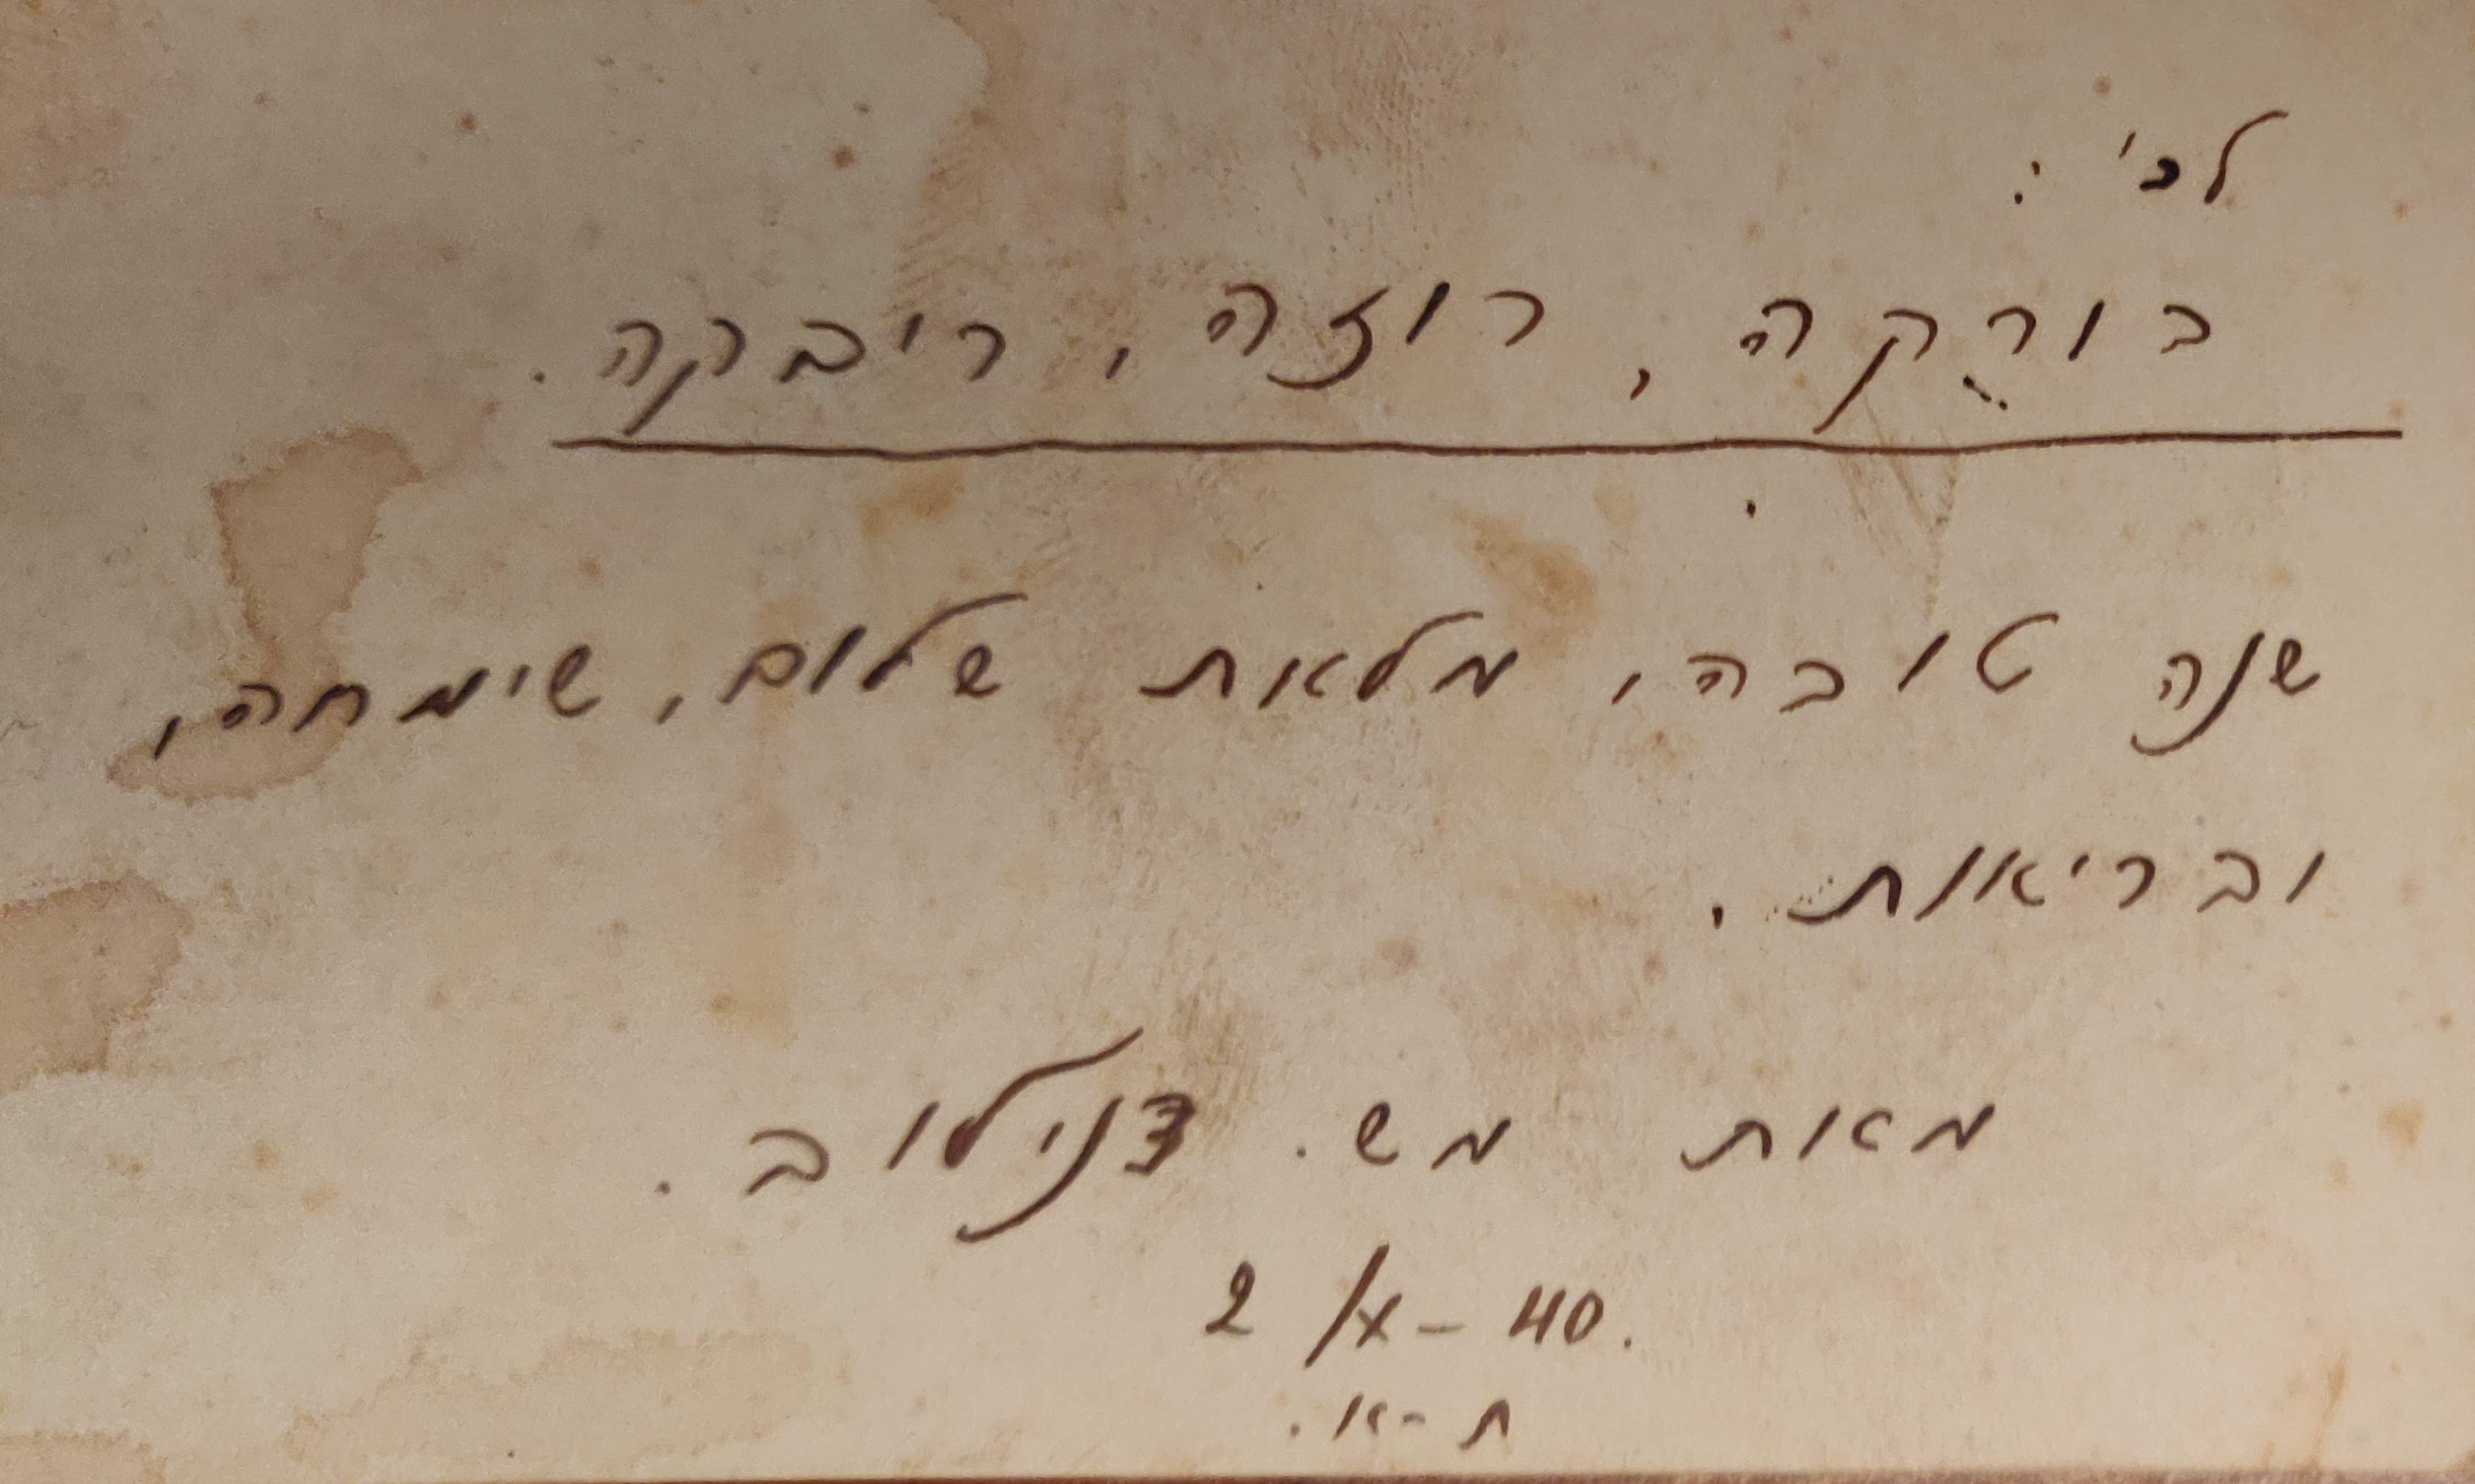 לכ' :
בורקה, רוזה, ריבקה.
שנה טובה, מלאת שלום, שימחה,
ובריאות.
מאת מש. דנילוב.
2/X – 40.
ת-א.